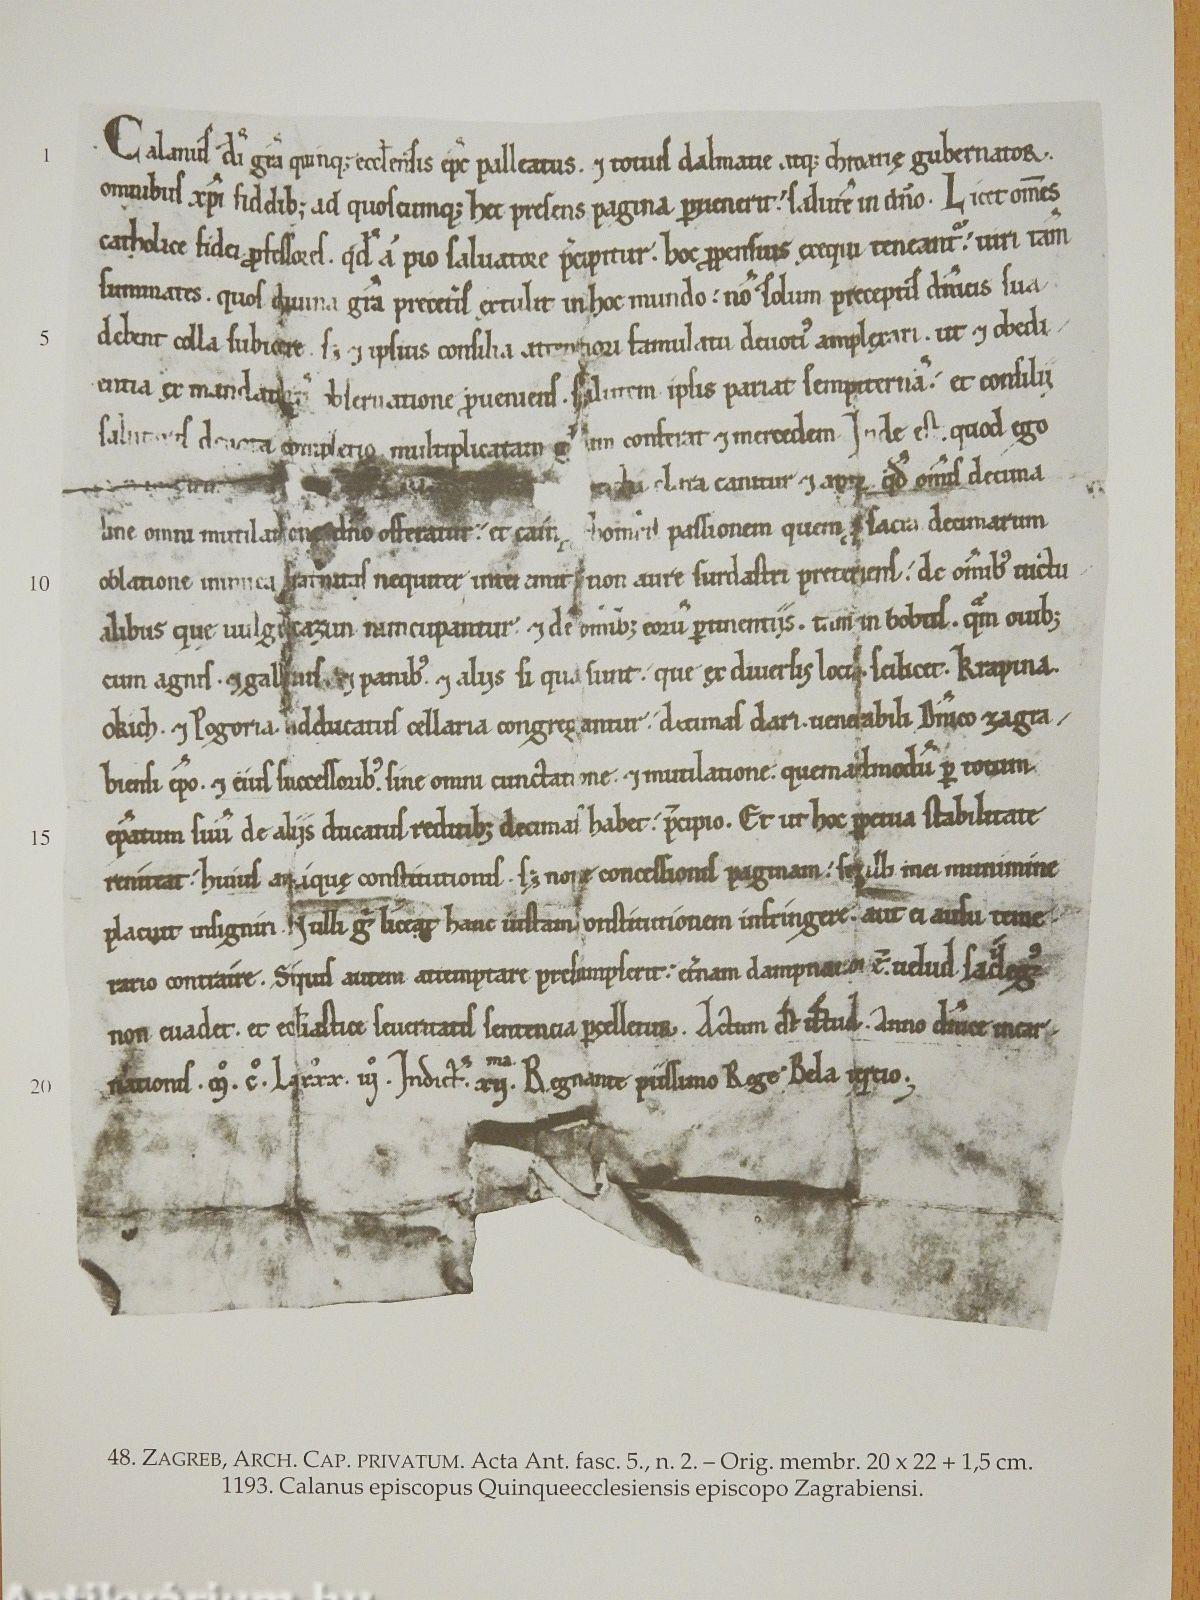 1
Calanus di gra quinq; eccl'ensis epc palleatus. ⁊ totius dalmatie atq; chroatię gubernator.
omnibus xpi fidelib; ad quoscumq; hec presens pagina puenerit: salute in dno. Licet omes
catholice fidei pfessores. qd a pio saluatore pcipitur. hoc ppensius exequi teneant: uiri tam
summates. quos diuina gra preceteris extulit in hoc mundo: no solum preceptis dnicis sua
5
debent colla subicere. sz ⁊ ipsius consilia attentiori famulatu deuoti amplexari. ut ⁊ obedi
entia ex mandati obseruatione pueniens. salutem ipsis pariat sempiterna: et consilij
salutaris deuota completio multiplicatam conferat ⁊ mercedem Inde est. quod ego
clara canitur ⁊ qd omis decima
sine omni mutilatione dno offeratur: et passionem quem sacra decimarum
10
oblatione nequiter non aure surdastri preteriens: de omib' uictu
alibus que uulgo nuncupantur. ⁊ de omib; eoru ptinentijs. tam in bobus. qm ouib;
cum agnis. ⁊ gallinis. ⁊ panib'. ⁊ alijs si qua sunt. que ex diuersis locis. scilicet. Krapina.
okich. ⁊ Pogoria. ad ducatus cellaria congregantur: decimas dari. uenerabili Dnico zagra
biensi epo. ⁊ eius successorib'. sine omni cunctatione. ⁊ mutilatione. quemadmodu p totum
15
epatum suu de alijs ducatus redditib; decimas habet: pcipio. Et ut hoc ppetua stabilitate
renitat: huius antique constitutionis. sz noue concessionis paginam: sigilli mei munimine
placuit insigniri. Nulli g liceat hanc iustam constitutionem infringere. aut ei ausu teme
rario contraire. Siquis autem attemptare presumpserit: etnam dampnationem uelud sacrileg'
non euadet. et eccliastice seueritatis sentencia pcelletur. Actum Anno dnice incar
20
nationis. M. C. LXXXX. iij. Indict. xij.ma Regnante piissimo Rege Bela tertio;
48. ZAGREB, ARCH. CAP. PRIVATUM. Acta Ant. fasc. 5., n. 2. – Orig. membr. 20 x 22 + 1,5 cm.
1193. Calanus episcopus Quinqueecclesiensis episcopo Zagrabiensi.